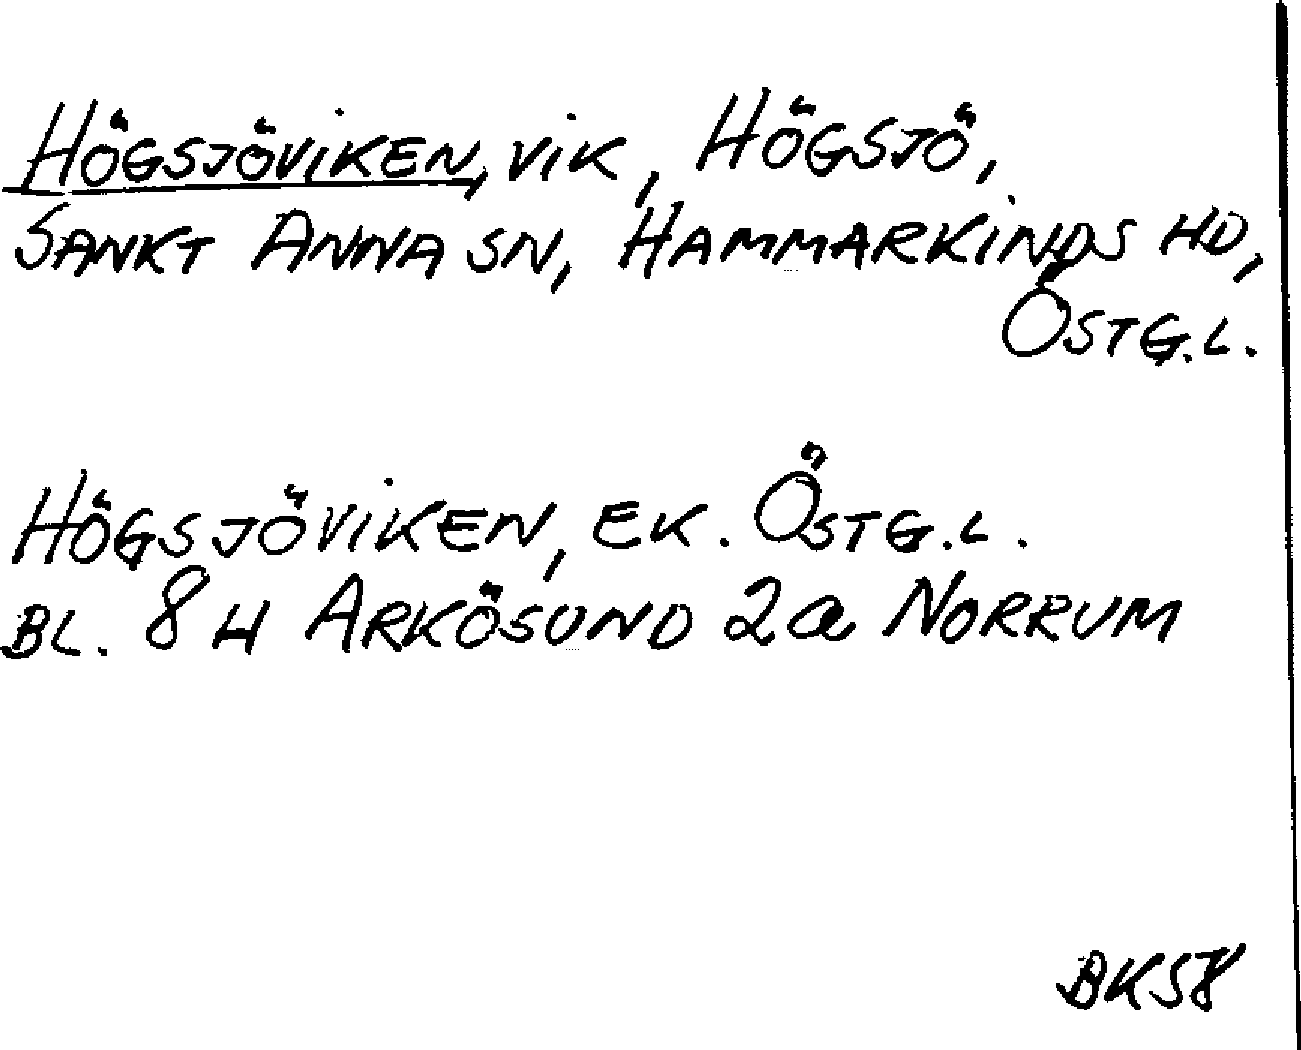 HÖGSJÖVIKEN, VIK, HÖGSJÖ,
SANKT ANNA SN, HAMMARKINDS HD,
ÖSTG.L.
HÖGSJÖVIKEN, EK. ÖSTG.L.
BL. 8H ARKÖSUND 2a NORRUM
BK58